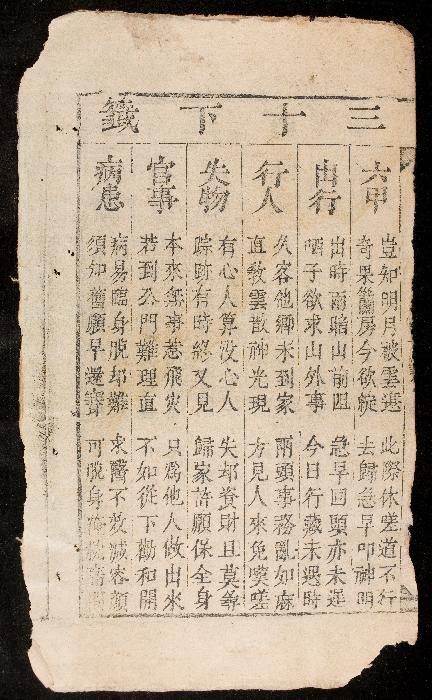 三十下籤
六甲
豈知明月被雲遮 此際休嗟道不行
奇果蘭房今欲綻 去歸急早叩神明
出行
出時雨暗山前阻 急早回頭亦未遲
哂子欲求山外事 今日行藏未遇時
行人
久客他鄉未到家 兩頭事務亂如麻
直教雲散神光現 方見人來免嘆嗟
失物
有心人算没心人 失却資財且莫尋
踪跡有時終又見 歸家許願保全身
官事
本來無事惹飛災 只為他人做出來
若到公門難理直 不如從下勸和開
病患
病易臨身脱却難 求醫不效減容顏
須知舊願早還賽 可脱身